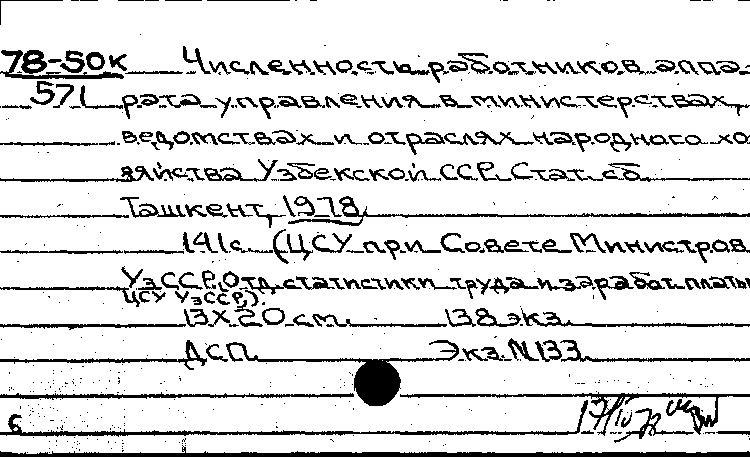 78-50к Численность работников аппа-
571 рата управления в министерствах,
ведомствах и отраслях народного хо-
зяйства Узбекской ССР. Стат. сб.
Ташкент, 1978.
141с. (ЦСУ при Совете Министров
УзССР, Отд. статистики труда и заработ. платы
ЦСУ УзССР).
13х20 см. 138 экз.
ДСП. Экз. N 133.
6